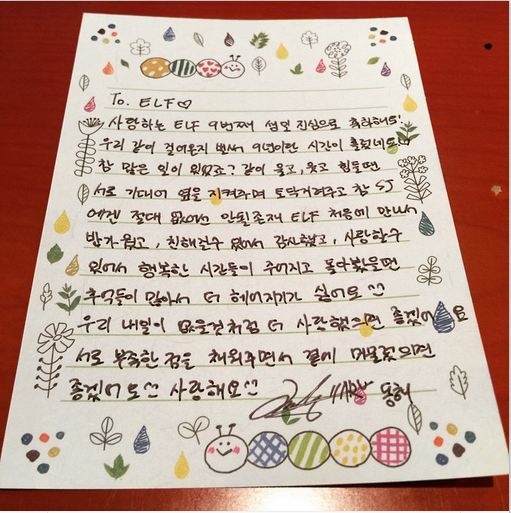 To. ELF♡
사랑하는 ELF 9번째 생일 진심으로 축하해요!
우리 같이 걸어온지 벌써 9년이란 시간이 흘렀네요
참 많은 일이 있었죠? 같이 울고, 웃고 힘들땐
서로 기대어 옆을 지켜주며 토닥거려주고 참 SJ
에겐 절대 없어선 안될존재 ELF 처음에 만나서
반가웠고, 친해질수 있어서 감사했고, 사랑할수
있어서 행복한 시간들이 주어지고 돌아봤을땐
추억들이 많아서 더 헤어지기가 싫어요
우리 내일이 없을것처럼 더 사랑했으면 좋겠어요
서로 부족한 점을 채워주면서 곁에 머물렀으면
좋겠어요 사랑해요 동해